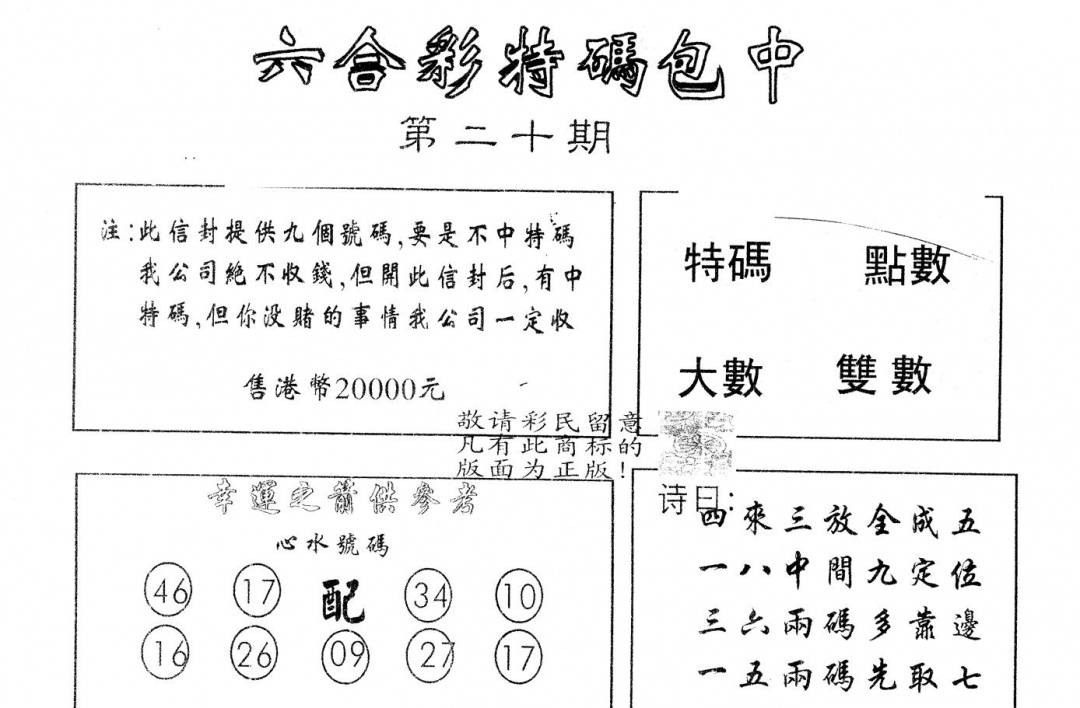 六合彩特碼包中
第二十期
注:此信封提供九個號碼,要是不中特碼
我公司絶不收錢,但開此信封后,有中
特碼,但你没賭的事情我公司一定收
售港幣20000元
特碼 點數
大數 雙數
敬请彩民留意
凡有此商标的
版面为正版!
幸運之箭供參考
心水號碼
46 17 配 34 10
16 26 09 27 17
诗曰:
四來三放全成五
一八中間九定位
三六兩碼多靠邊
一五兩碼先取七